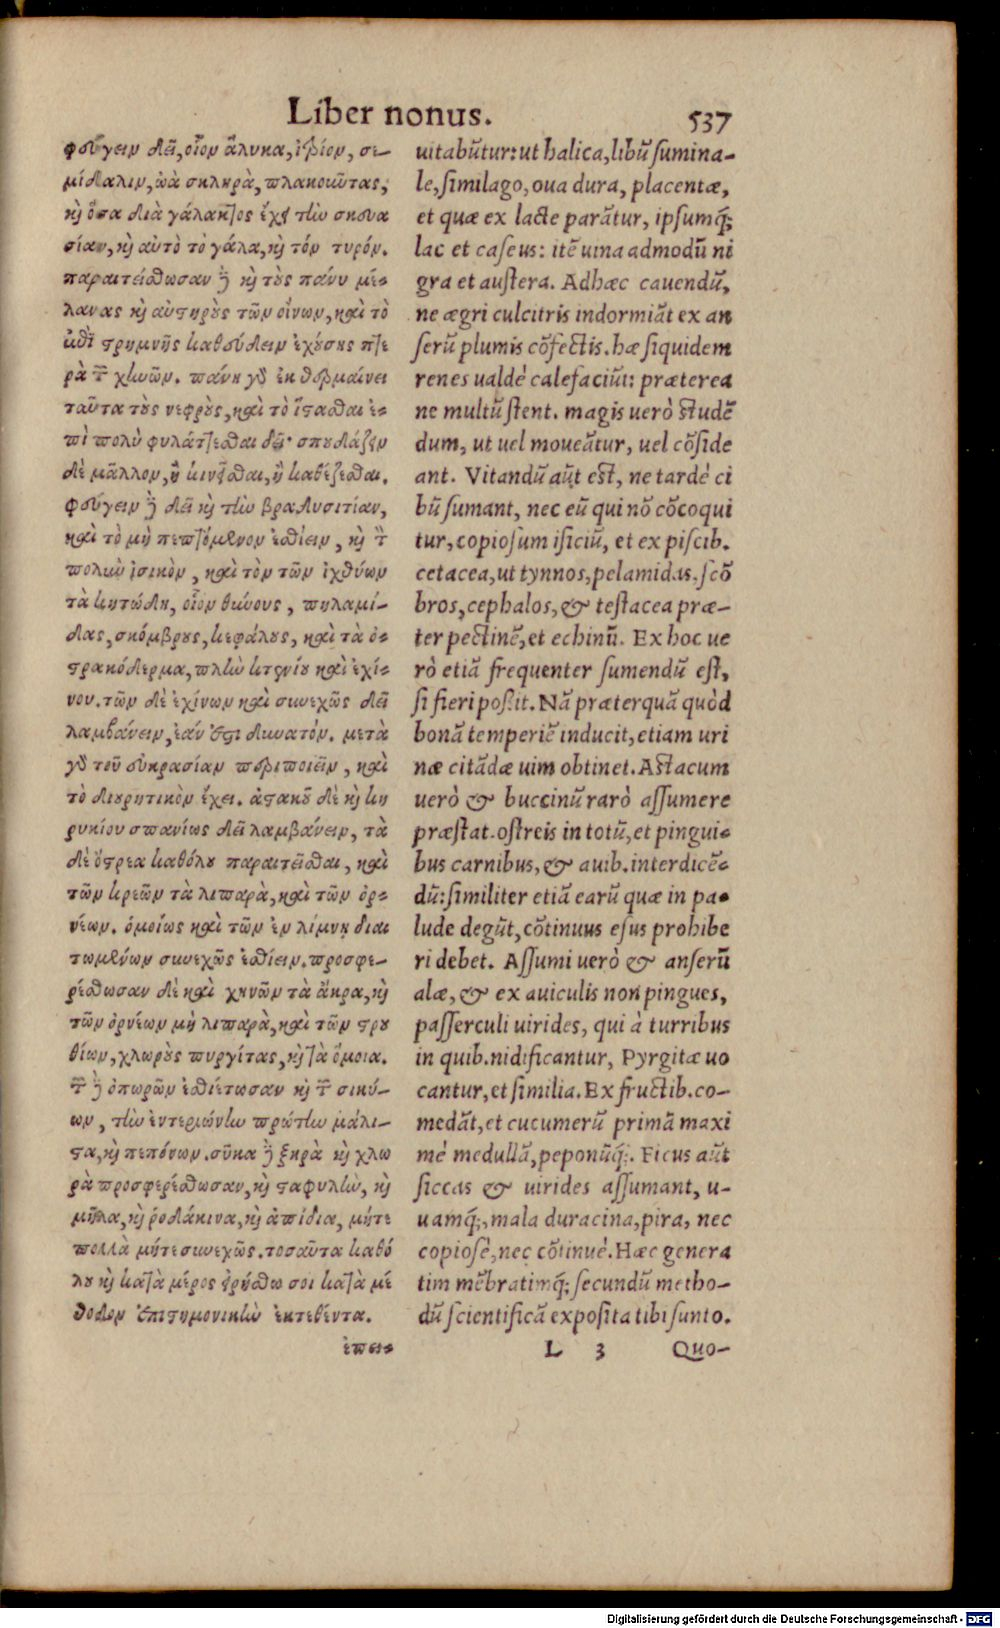 Liber nonus.
537
φεύγειν δεῖ, οἷον ἄλυκα, ἴτριον, σε-
μίδαλιν, ὠὰ σκληρὰ, πλακοῦντας,
καὶ ὅσα διὰ γάλακτος ἔχει τὴν σκευα
σίαν, καὶ αὐτὸ τὸ γάλα, καὶ τὸν τυρόν.
παραιτείσθωσαν δὲ καὶ τοὺς πάνυ μέ-
λανας καὶ αὐστηροὺς τῶν οἴνων, καὶ τὸ
ἐπὶ στρωμνῆς καθεύδειν ἐχούσης πτε
ρὰ τῶν χηνῶν. πάνυ γὰρ ἐκθερμαίνει
ταῦτα τοὺς νεφροὺς, καὶ τὸ ἵστασθαι ἐ-
πὶ πολὺ φυλάττεσθαι δεῖ· σπουδάζειν
δὲ μᾶλλον, ἢ κινεῖσθαι, ἢ καθέζεσθαι.
φεύγειν δὲ δεῖ καὶ τὴν βραδυσιτίαν,
καὶ τὸ μὴ πεπτόμενον ἐσθίειν, καὶ τὸν
πολὺν ἰσικὸν, καὶ τὸν τῶν ἰχθύων
τὰ κητώδη, οἷον θύννους, πηλαμί-
δας, σκόμβρους, κεφάλους, καὶ τὰ ὀ-
στρακόδερμα, πλὴν κτενίου καὶ ἐχί-
νου. τῶν δὲ ἐχίνων καὶ συνεχῶς δεῖ
λαμβάνειν, ἐάν ἐστι δυνατόν. μετὰ
γὰρ τοῦ εὐκρασίαν περιποιεῖν, καὶ
τὸ διουρητικὸν ἔχει. ἀστακοῦ δὲ καὶ κη
ρυκίου σπανίως δεῖ λαμβάνειν, τὰ
δὲ ὄστρεα καθόλου παραιτεῖσθαι, καὶ
τῶν κρεῶν τὰ λιπαρὰ, καὶ τῶν ὀρ-
νέων. ὁμοίως καὶ τῶν ἐν λίμνῃ διαι
τωμένων συνεχῶς ἐσθίειν. προσφε-
ρέσθωσαν δὲ καὶ χηνῶν τὰ ἄκρα, καὶ
τῶν ὀρνέων μὴ λιπαρὰ, καὶ τῶν στρου
θίων, χλωροὺς πυργίτας, καὶ τὰ ὅμοια.
τῶν δὲ ὀπωρῶν ἐσθιέτωσαν καὶ τῶν σικύ-
ων, τὴν ἐντεριώνην πρώτην μάλι-
στα, καὶ πεπόνων. σῦκα δὲ ξηρὰ καὶ χλω
ρὰ προσφερέσθωσαν, καὶ σταφυλὴν, καὶ
μῆλα, καὶ ῥοδάκινα, καὶ ἀπίδια, μήτε
πολλὰ μήτε συνεχῶς. τοσαῦτα καθό
λου καὶ κατὰ μέρος εἰρήσθω σοι κατὰ μέ
θοδον ἐπιστημονικὴν ἐκτεθέντα.
ἐπει-
uitabũtur: ut halica, libũ sumina-
le, similago, oua dura, placentæ,
et quæ ex lacte parãtur, ipsumq́;
lac et caseus: itẽ uina admodũ ni
gra et austera. Adhæc cauendũ,
ne ægri culcitris indormiãt ex an
serũ plumis cõfectis. hæ siquidem
renes ualdè calefaciũt: præterea
ne multũ stent. magis uerò studẽ
dum, ut uel moueãtur, uel cõside
ant. Vitandũ aũt est, ne tardè ci
bũ sumant, nec eũ qui nõ cõcoqui
tur, copiosum isiciũ, et ex piscib.
cetacea, ut tynnos, pelamidas, scõ
bros, cephalos, & testacea præ-
ter pectinẽ, et echinũ. Ex hoc ue
rò etiã frequenter sumendũ est,
si fieri poßit. Nã præterquã quòd
bonã temperiẽ inducit, etiam uri
næ citãdæ uim obtinet. Astacum
uerò & buccinũ rarò assumere
præstat. ostreis in totũ, et pingui-
bus carnibus, & auib. interdicẽ-
dũ: similiter etiã earũ quæ in pa-
lude degũt, cõtinuus esus prohibe
ri debet. Assumi uerò & anserũ
alæ, & ex auiculis non pingues,
passerculi uirides, qui à turribus
in quib. nidificantur, Pyrgitæ uo
cantur, et similia. Ex fructib. co-
medãt, et cucumerũ primã maxi
mè medullã, peponũq́;. Ficus aũt
siccas & uirides assumant, u-
uamq́;, mala duracina, pira, nec
copiosè, nec cõtinuè. Hæc genera
tim mẽbratimq́; secundũ metho-
dũ scientificã exposita tibi sunto.
L 3
Quo-
Digitalisierung gefördert durch die Deutsche Forschungsgemeinschaft - DFG